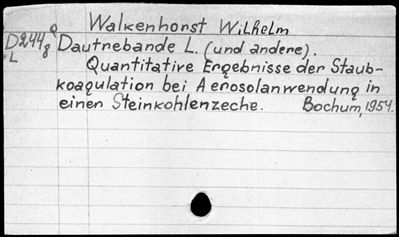 Walkenhorst Wilhelm
D244g Dautrebande L. (und andere).
L
Quantitative Ergebnisse der Staub-
koagulation bei Aerosolanwendung in
einen Steinkohlenzeche. Bochum, 1954.